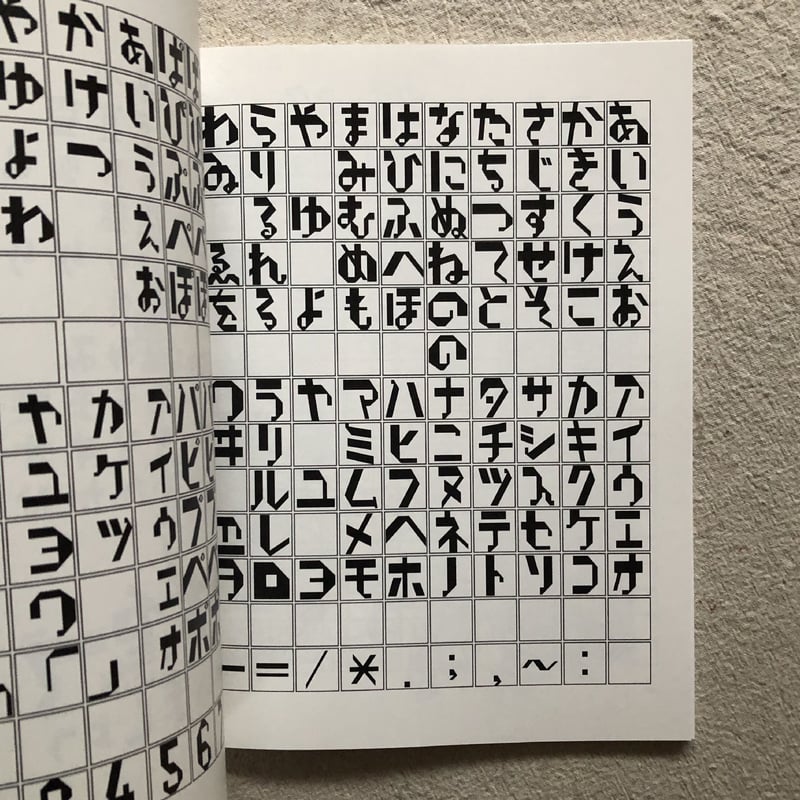 あいうえお
かきくけこ
さじすせそ
たちつてと
なにぬねのの
はひふへほ
まみむめも
やゆよ
らりるれる
わゐゑを
アイウエオ
カキクケコ
サシスセソ
タチツテト
ナニヌネノ
ハヒフヘホ
マミムメモ
ヤユヨ
ラリルレロ
ワヰヱヲ
ー = / * . ; , 〜 :
ぱぴぷぺぽ
ぁぃぅぇぉ
ゕゖっ
ゃゅょゎ
パピプペポ
ァィゥェォ
ヵヶッ
ャュョヮ
「 」
4 5 6